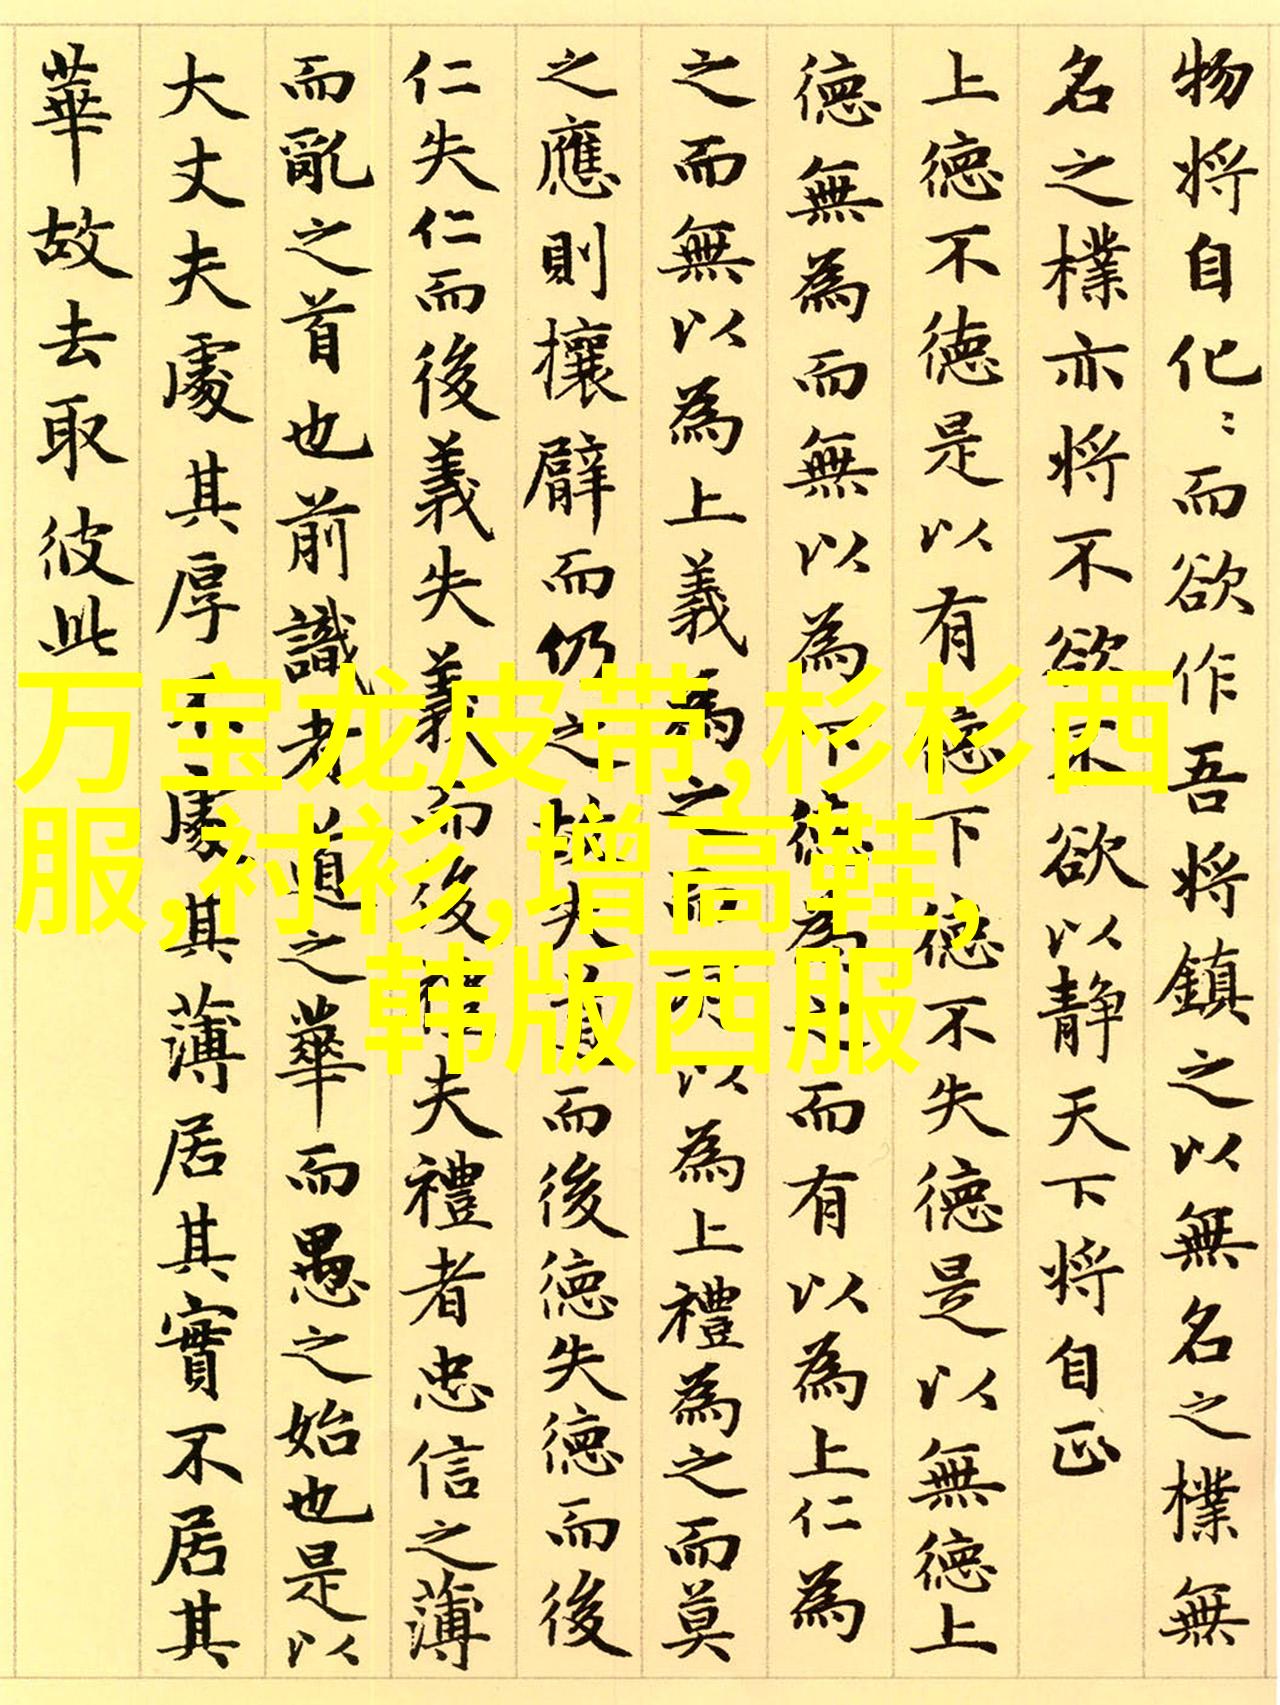 物将自化〻而欲作吾将鎮之以無名之樸無
名之樸亦将不欲不欲以静天下将自正
上德不德是以有德下德不失德是以無德上
德無為而無以為下德為之而有以為上仁為
之而無以為上義為之而有以為上禮為之而莫
之應則攘臂而仍之故失道而後德失德而後
仁失仁而後義失義而後禮夫禮者忠信之薄
而亂之首也前識者道之華而愚之始也是以
大丈夫處其厚不處其薄居其實不居其
華故去取彼此
万宝龙皮带,杉杉西
服,衬衫,增高鞋,
韩版西服